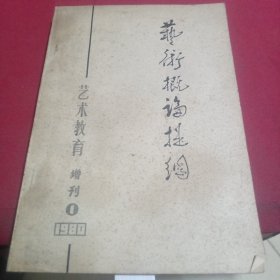 藝術概論提綱
艺术教育
增刊
1
1980